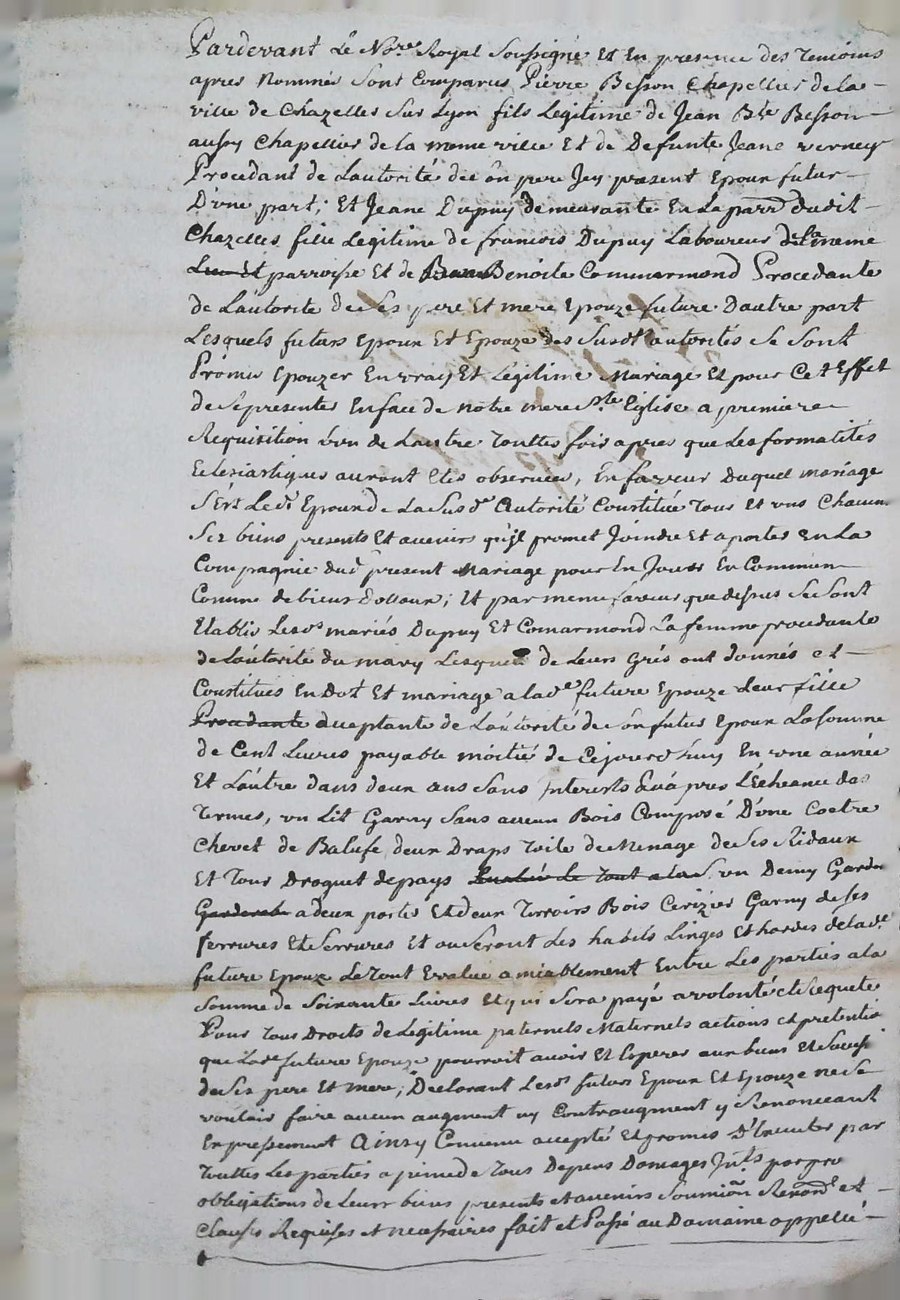 Pardevant Le No.re Royal Soussigné Et En presence des Temioins
apres Nommés Sont Comparus Pierre Besson Chapellier de la
ville de Chazelles Sur Lyon fils Legitime de Jean B.te Besson
aussy Chapellier de la meme ville Et de Defunte Jeane verney
Procedant de L'autorité de son pere Jcy present Epoux futur
D'une part; Et Jeane Dupuy demeurante En La parr.e dudit
Chazelles fille Legitime de francois Dupuy Laboureur de La meme
Lieu Et parroisse Et de Benoite Commarmond Procedante
de Lautorité de Ses pere Et mere Epouze future Dautre part
Lesquels futurs Epoux Et Epouze des Susd.t autorités Se Sont
Promis Epouzer En vray Et Legitime Mariage Et pour Cet Effet
de Se presenter En face de notre mere S.te Eglise a premiere
Requisition Lun de Lautre Touttes fois apres que Les formalités
Eclesiastiques auront Etés observées, En faveur Duquel mariage
S'est Le d.t Epoux de La Sus d.e Autorité Constitué Tous Et uns Chacun
Ses biens presents Et avenirs qu'jl promet Joindre Et aporter en La
Compagnie dud.t present Mariage pour En Jouir En Commun
Comme de biens dotaux; Et par meme faveur que dessus Se Sont
Etablis Les d.s mariés Dupuy Et Comarmond La femme procedante
de Lautorité du mary Lesquels de Leurs Grés ont donnés et
Constitués En Dot Et mariage a lad.e future Epouze Leur fille
Procedante aceptante de L'autorité de son futur Epoux La Somme
de Cent Livres payable moitié de Cejourd'huy En une année
Et L'autre dans deux ans Sans Interests qu'a pres L'Echeance des
Termes, un Lit Garny Sans aucun Bois Composé D'une Coetre
Chevet de Balufe, deux Draps Toile de Menage de Ses Ridaux
Et Tour Droguet de pays un Demy Garde
Garderobe a deux portes Et deux Tirroirs Bois Cerizier Garny de ses
ferrures Et Serrures Et ou Seront Les habits Linges Et hardes de lad.e
future Epouze Le Tout Evalué amiablement Entre Les parties a la
Somme de Soixante Livres Et qui Sera payé a volonté et Requete
Pour Tous Droits de Legitime paternels Maternels actions et pretentio
que Lad.e future Epouze pourroit avoir Et Esperer aux biens Et Succession
de Ses pere Et mere; Declarant Les d.s futurs Epoux Et Epouze ne Se
vouloir faire aucun augment ny Contraugment y Renonceant
Expressement Ainsy Convenu accepté Et promis D'Executer par
Touttes Les parties a peine de Tous Depens Domages Jnt.ts par
obligations de Leurs biens presents et avenirs Soumiõn Renond.e et
Clauses Requises et necessaires fait et Passé au Domaine appellé